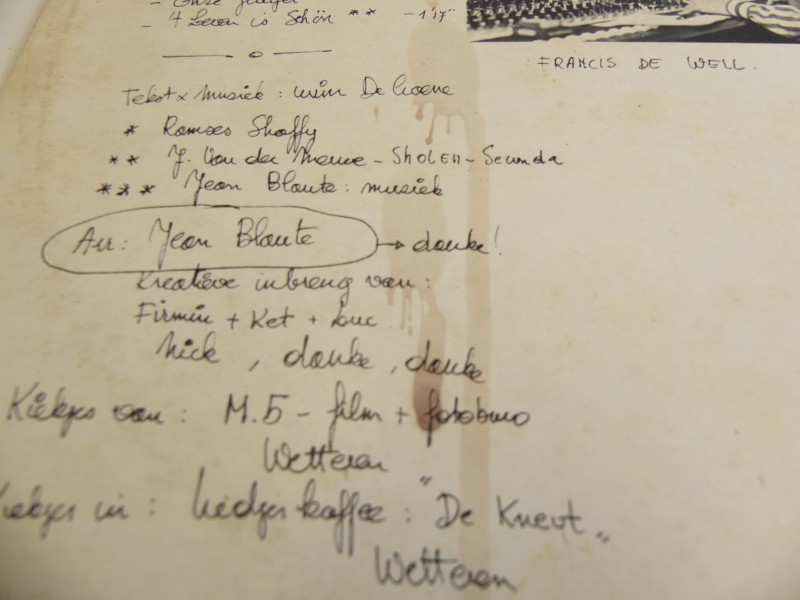 - 't Leven is Schön ** - 1'17"
FRANCIS DE WELL.
Tekst x Musiek : wim De Craene
* Ramses Shaffy
** J. Van der Merwe - SHOLEM - Secunda
*** Jean Blaute : musiek
Arr: Jean Blaute → danke!
Kreatieve inbreng van :
Firmin + Ket + Luc
Nick , danke , danke
Kiekjes van : M.5 - film + fotoburo
Wetteren
Kiekjes in : Liedjeskaffee : "De Kneut"
Wetteren